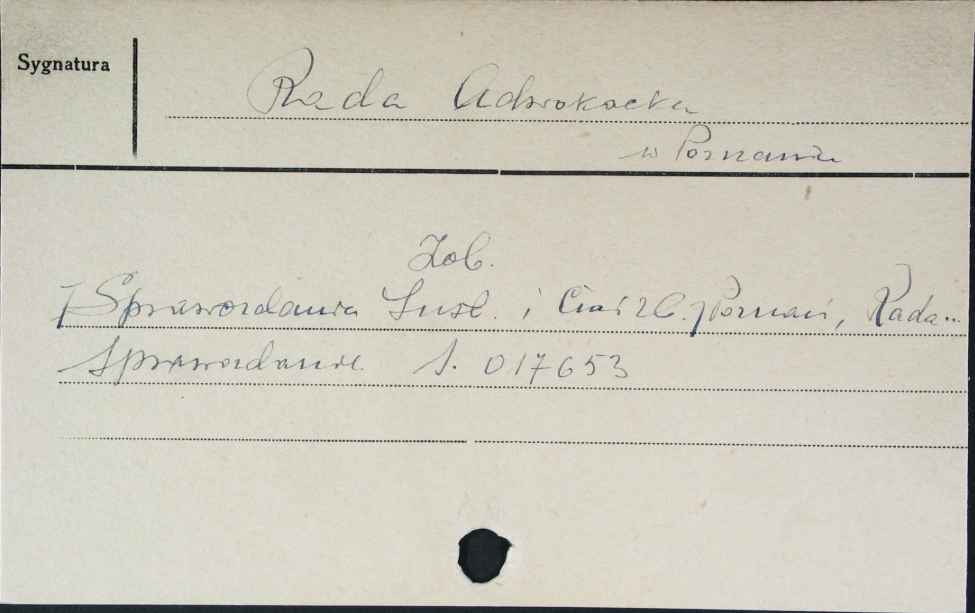 Sygnatura
Rada Adwokacka
w Poznaniu
Zob.
[Sprawozdania Inst. i Ciał zb.] Poznań, Rada..
Sprawozdanie S. 017653